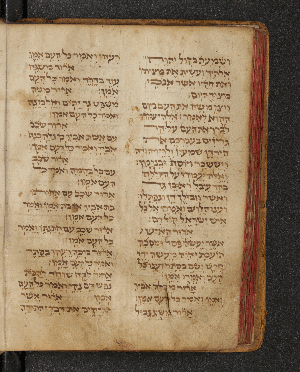 ושמעת בקול יהוה
אלהיך ועשית את מצותיו
ואת חקיו אשר אנכי מצוך
היום
ויצו משה את העם ביום
ההוא לאמר אלה יעמדו
לברך את העם על הר
גריזים בעברכם את
הירדן שמעון ולוי ויהודה
ויששכר ויוסף ובנימן
ואלה יעמדו על הקללה
בהר עיבל ראובן גד
ואשר וזבולן דן ונפתלי
וענו הלוים ואמרו אל כל
איש ישראל קול רם
ארור האיש
אשר יעשה פסל ומסכה
תועבת יהוה מעשה ידי
חרש ושם בסתר וענו כל
העם ואמרו אמן
ארור מקלה אביו
ואמו ואמר כל העם אמן
ארור מסיג גבול
רעהו ואמר כל העם אמן
ארור משגה
עור בדרך ואמר כל העם
אמן ארור מטה
משפט גר יתום ואלמנה
ואמר כל העם אמן
ארור שכב
עם אשת אביו כי גלה כנף
אביו ואמר כל העם אמן
ארור שכב
עם כל בהמה ואמר כל
העם אמן
ארור שכב עם אחתו
בת אביו או בת אמו ואמר
כל העם אמן
ארור שכב עם חתנתו ואמר
כל העם אמן
ארור מכה רעהו בסתר
ואמר כל העם אמן
ארור לקח שחד להכות
נפש דם נקי ואמר כל העם
אמן ארור אשר
לא יקים את דברי התורה